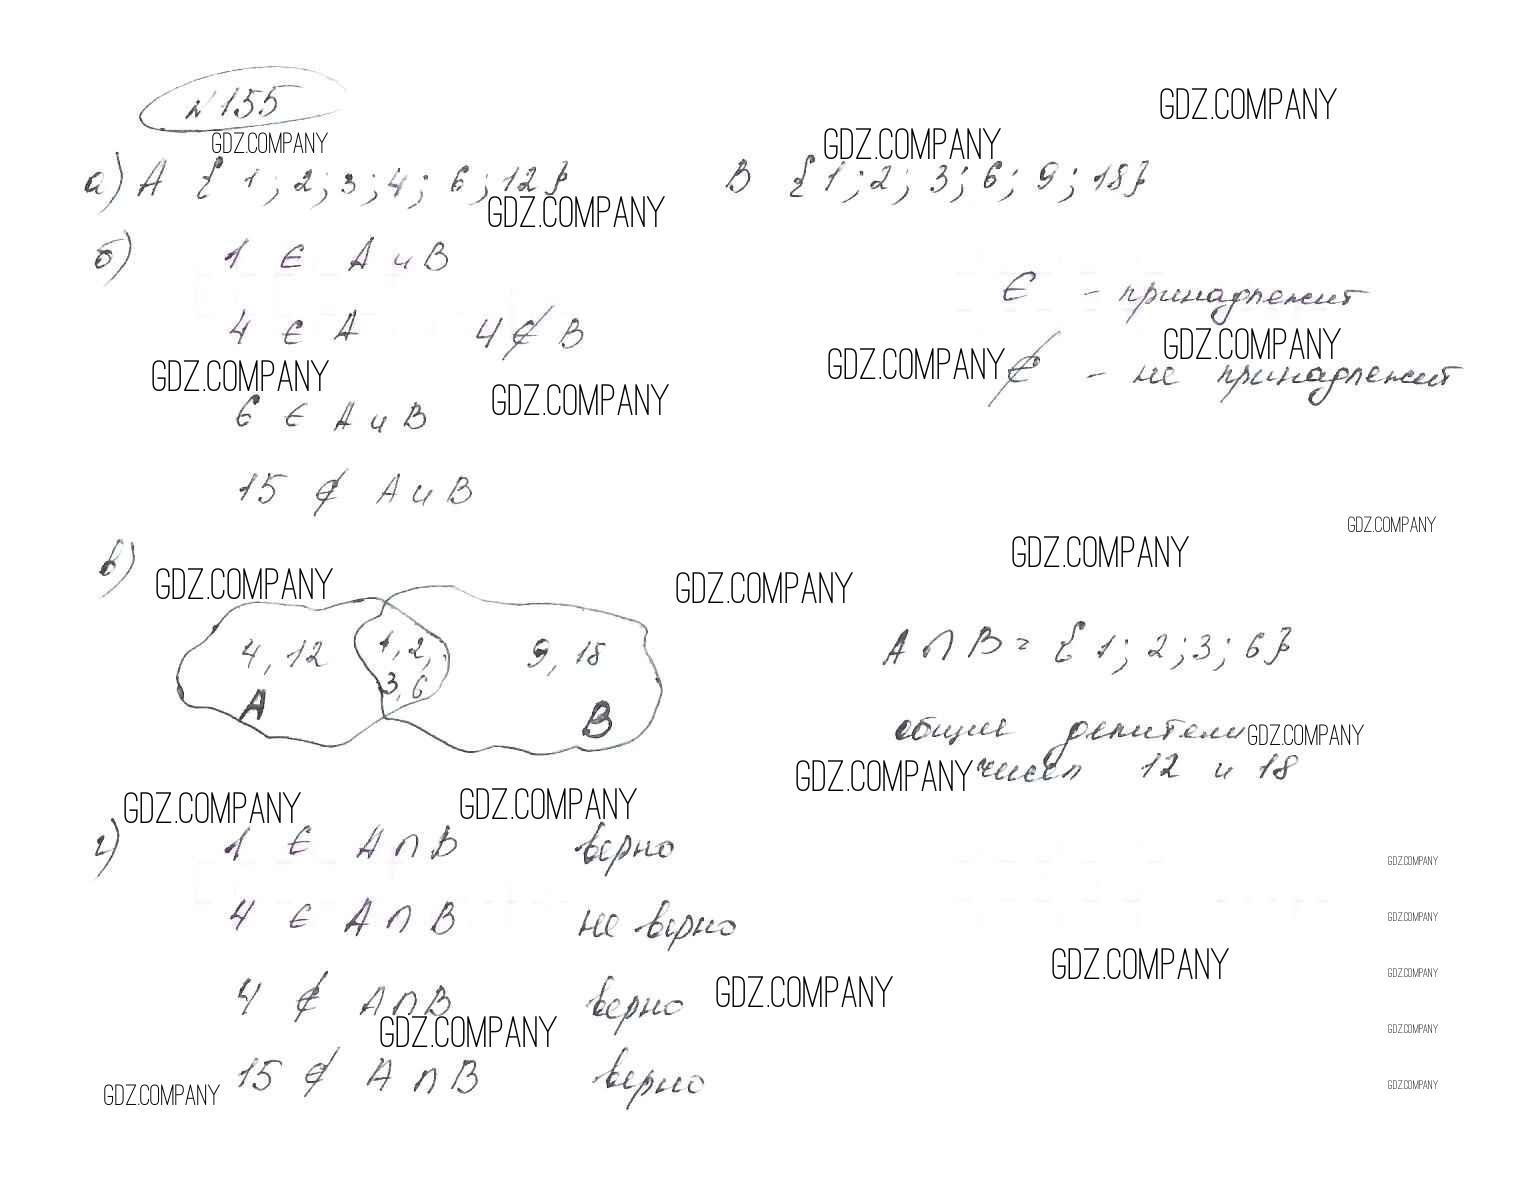 N 155
GDZ.COMPANY
GDZ.COMPANY
GDZ.COMPANY
а) A { 1 ; 2 ; 3 ; 4 ; 6 ; 12 } B { 1 ; 2 ; 3 ; 6 ; 9 ; 18 }
GDZ.COMPANY
б) 1 ∈ A и B
∈ - принадлежит
4 ∈ A 4 ∉ B
GDZ.COMPANY
GDZ.COMPANY
∉ - не принадлежит
GDZ.COMPANY
GDZ.COMPANY
6 ∈ A и B
15 ∉ A и B
GDZ.COMPANY
в)
GDZ.COMPANY
GDZ.COMPANY
GDZ.COMPANY
4, 12 1, 2, 9, 18
3, 6
A B
A ∩ B = { 1 ; 2 ; 3 ; 6 }
общие делители
GDZ.COMPANY
чисел 12 и 18
GDZ.COMPANY
GDZ.COMPANY
GDZ.COMPANY
г) 1 ∈ A ∩ B верно
GDZ.COMPANY
4 ∈ A ∩ B не верно
GDZ.COMPANY
GDZ.COMPANY
GDZ.COMPANY
4 ∉ A ∩ B верно
GDZ.COMPANY
GDZ.COMPANY
GDZ.COMPANY
15 ∉ A ∩ B верно
GDZ.COMPANY
GDZ.COMPANY